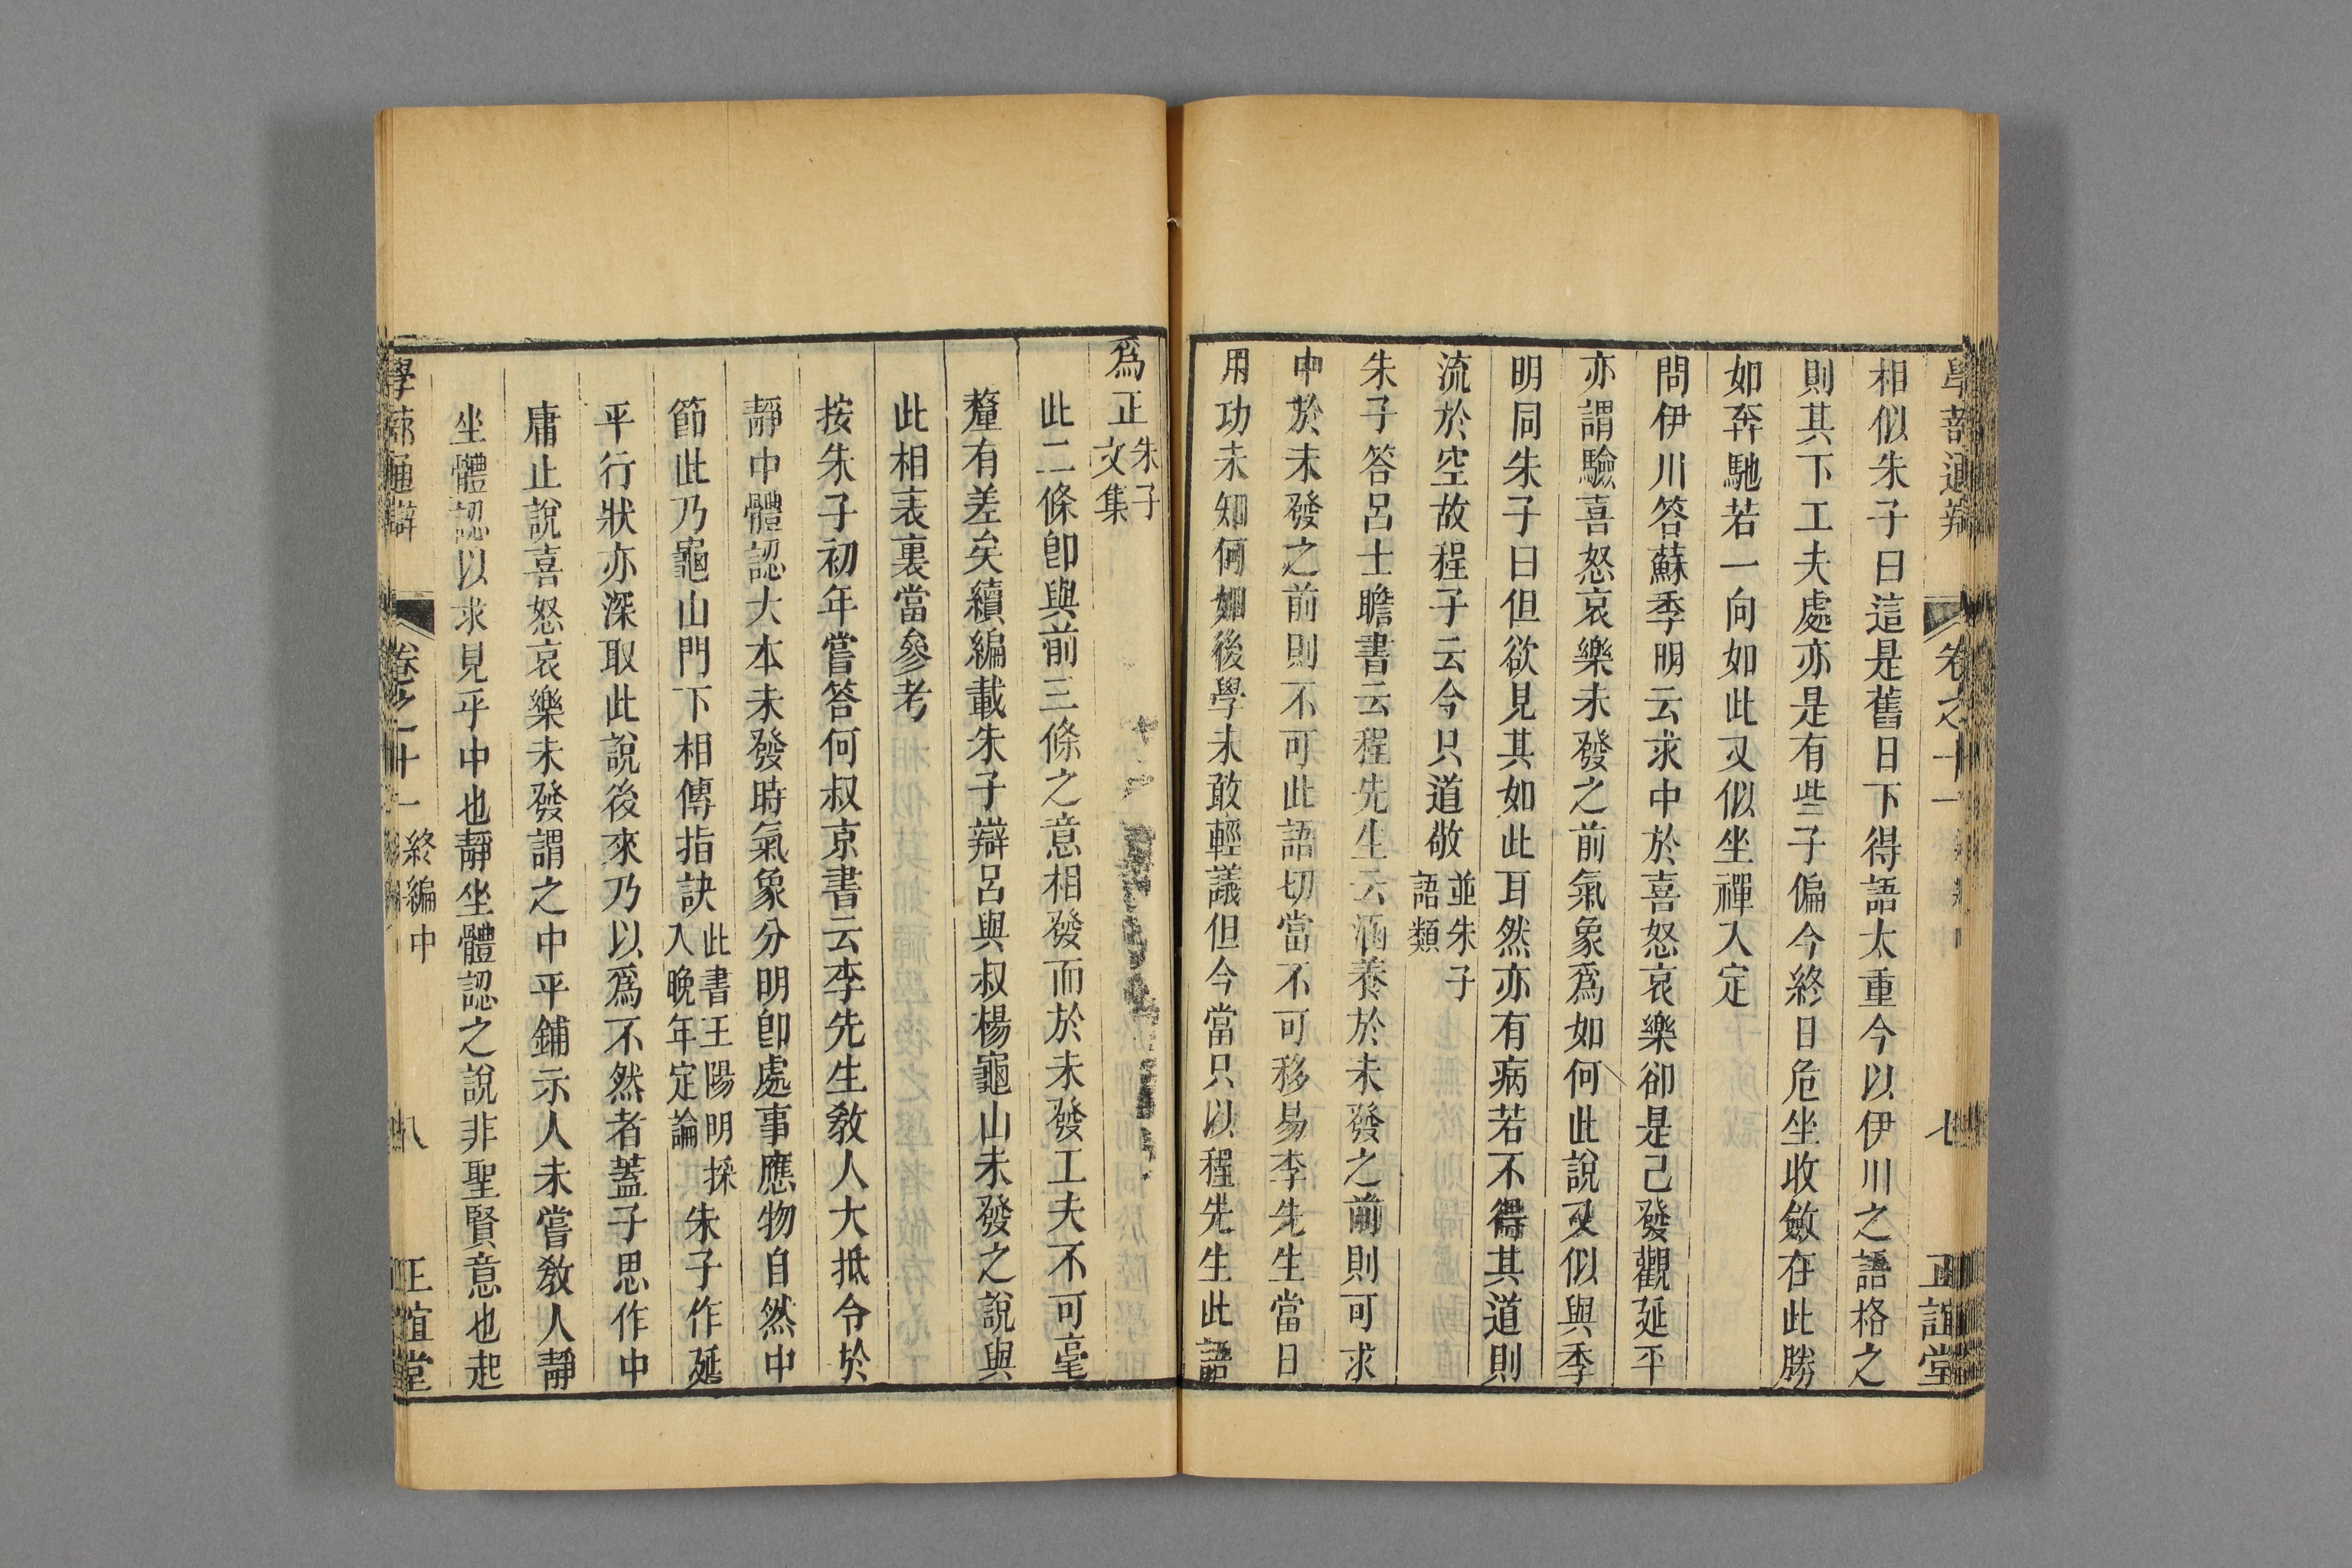 學蔀通辯 卷之十一 七 正誼堂
相似朱子曰這是舊日下得語太重今以伊川之語格之
則其下工夫處亦是有些子偏今終日危坐收斂在此勝
如奔馳若一向如此又似坐禪入定
問伊川答蘇季明云求中於喜怒哀樂卻是已發觀延平
亦謂驗喜怒哀樂未發之前氣象為如何此說又似與季
明同朱子曰但欲見其如此耳然亦有病若不得其道則
流於空故程子云今只道敬並朱子語類
朱子答呂士瞻書云程先生云涵養於未發之前則可求
中於未發之前則不可此語切當不可移易李先生當日
用功未知何如後學未敢輕議但今當只以程先生此語
為正朱子文集
此二條卽與前三條之意相發而於未發工夫不可毫
釐有差矣續編載朱子辯呂與叔楊龜山未發之說與
此相表裏當參考
按朱子初年嘗答何叔京書云李先生教人大抵令於
靜中體認大本未發時氣象分明卽處事應物自然中
節此乃龜山門下相傳指訣此書王陽明採入晚年定論朱子作延
平行狀亦深取此說後來乃以為不然者蓋子思作中
庸止說喜怒哀樂未發謂之中平鋪示人未嘗教人靜
坐體認以求見乎中也靜坐體認之說非聖賢意也起
學蔀通辯 卷之十一 終編中 八 正誼堂